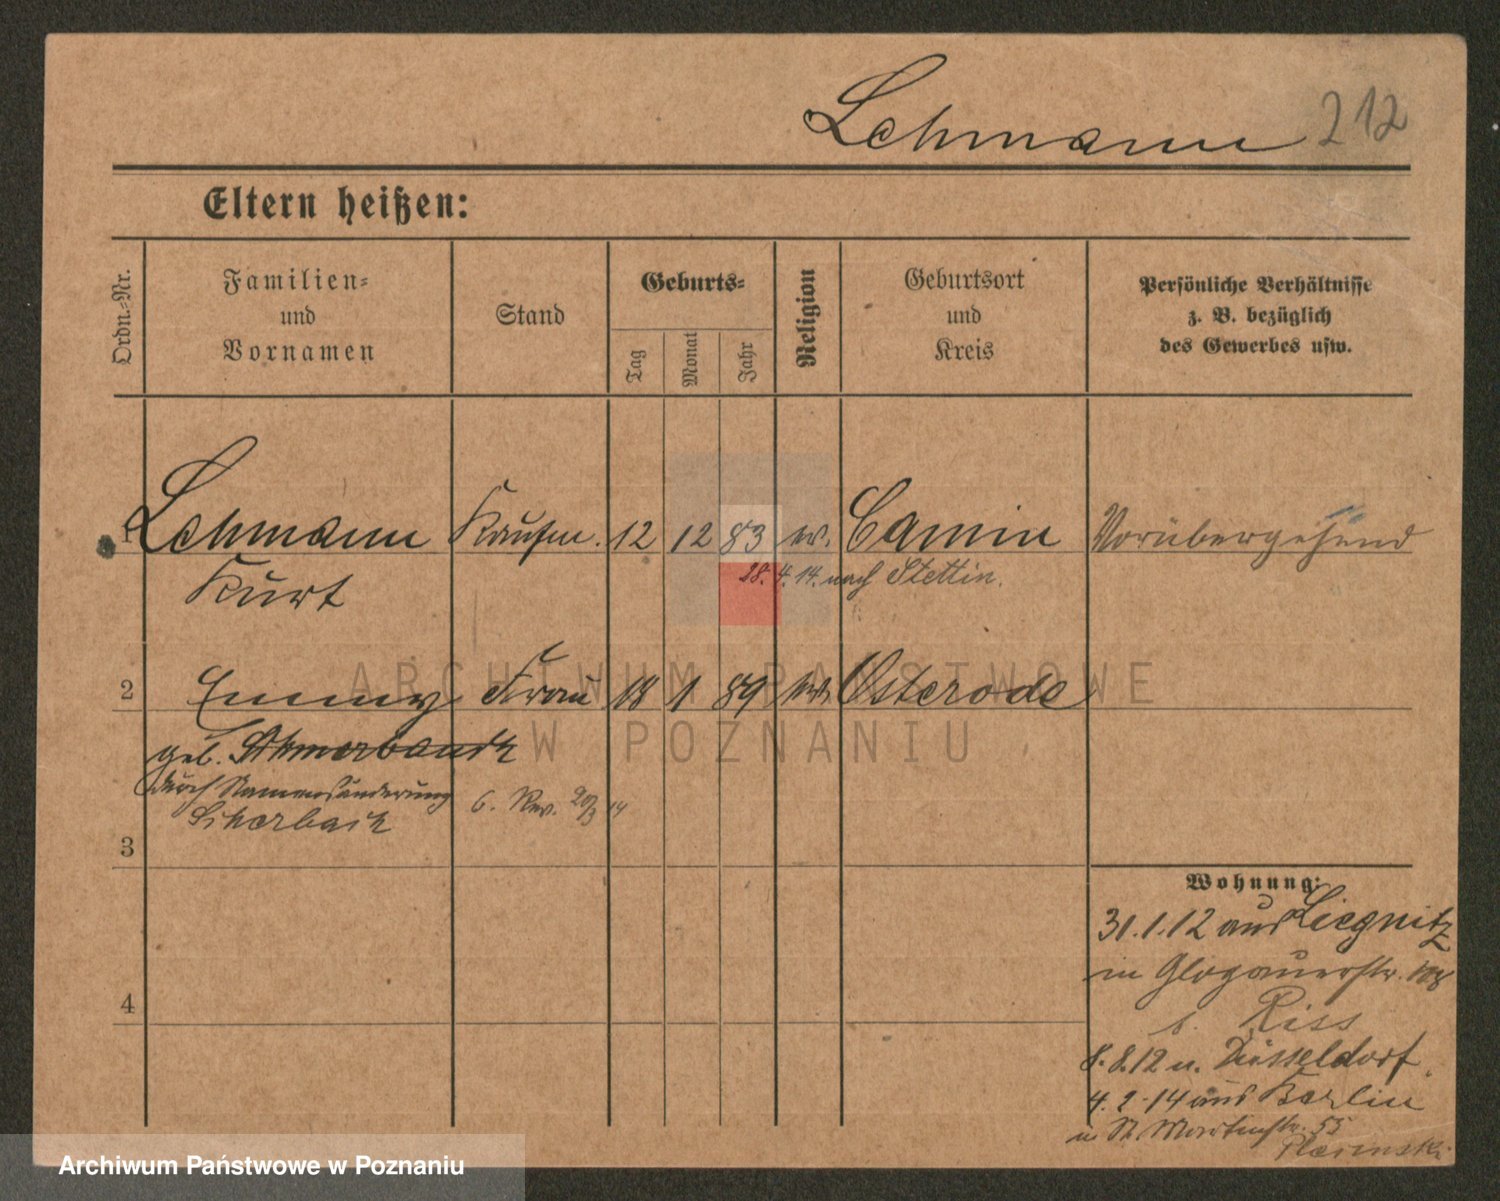 Lehmann 212
Eltern heißen:
Ordn.-Nr.
Familien-
und
Vornamen
Stand
Geburts-
Tag
Monat
Jahr
Religion
Geburtsort
und
Kreis
Persönliche Verhältnisse
z. B. bezüglich
des Gewerbes usw.
1 Lehmann Kaufm. 12 12 83 ev. Camin Vorübergehend
Kurt
28. 4. 14. nach Stettin.
2 Emmy Frau 18 1 89 ev. Osterode
geb.
durch Namensänderung
6. Rev. 20/3 14
3
Wohnung:
31.1.12 aus Liegnitz
in Glogauerstr. 108
b. Riss
8.8.12 n. Düsseldorf.
4.2.14 aus Berlin
in St. Martinstr. 55
4
ARCHIWUM PAŃSTWOWE
W POZNANIU
Archiwum Państwowe w Poznaniu